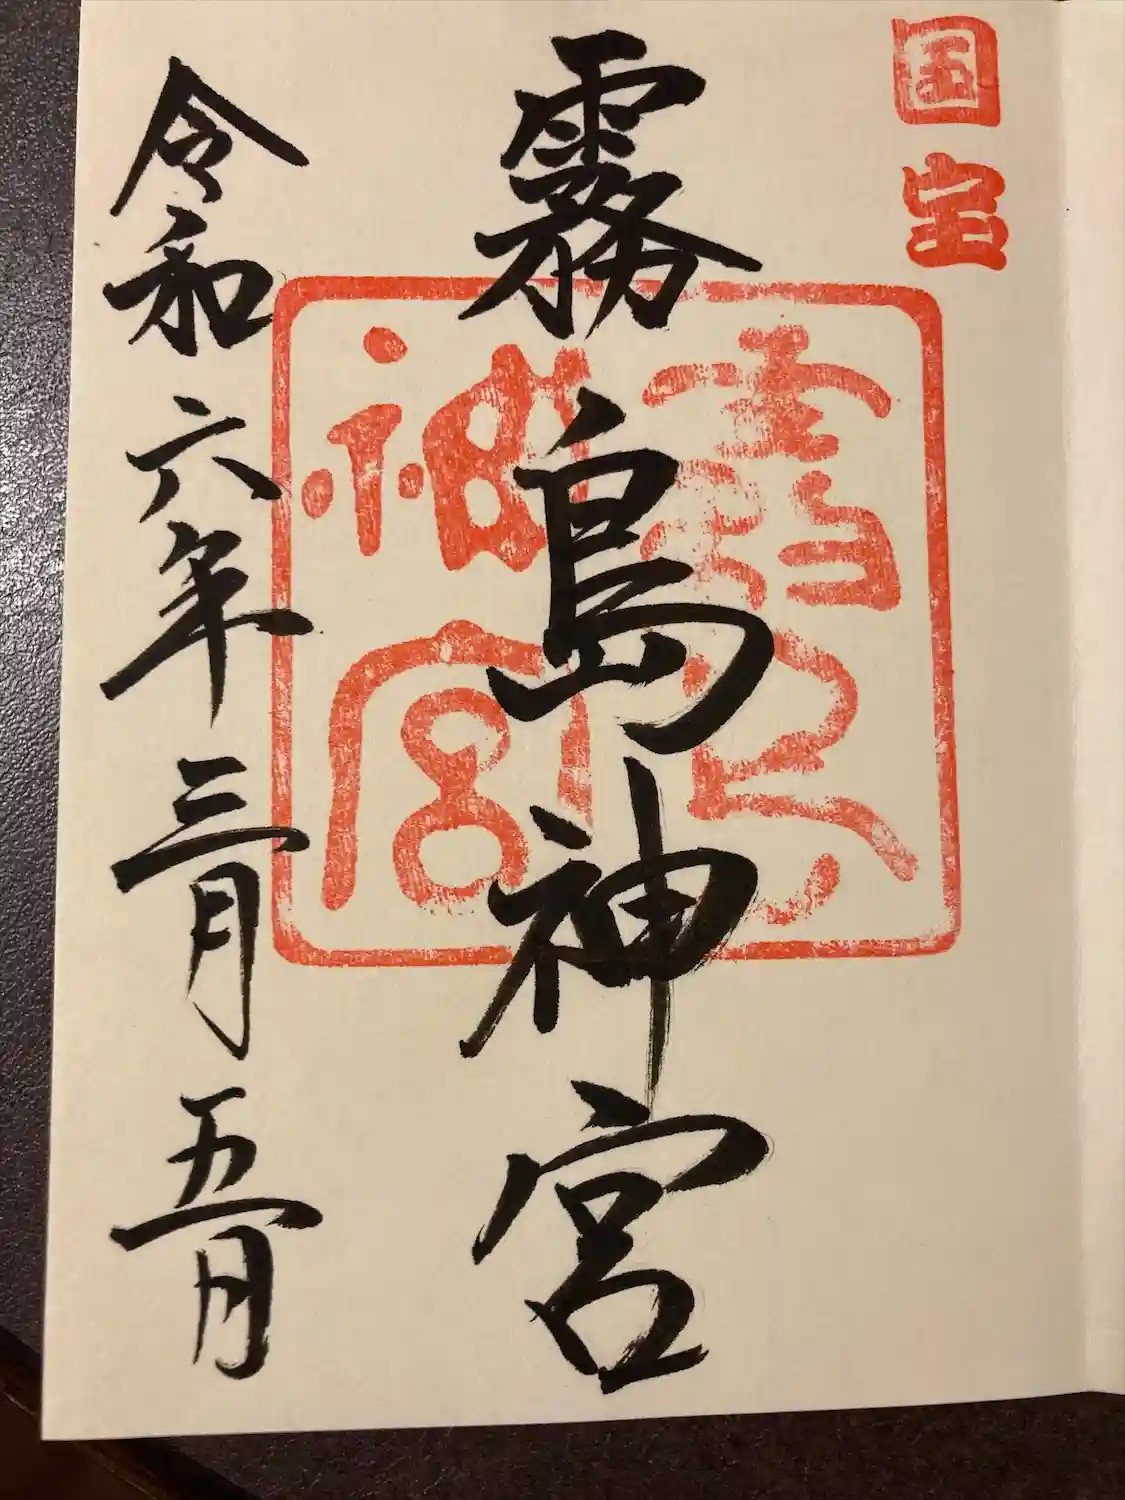 国宝
霧島神宮
霧島神宮
令和六年三月五日